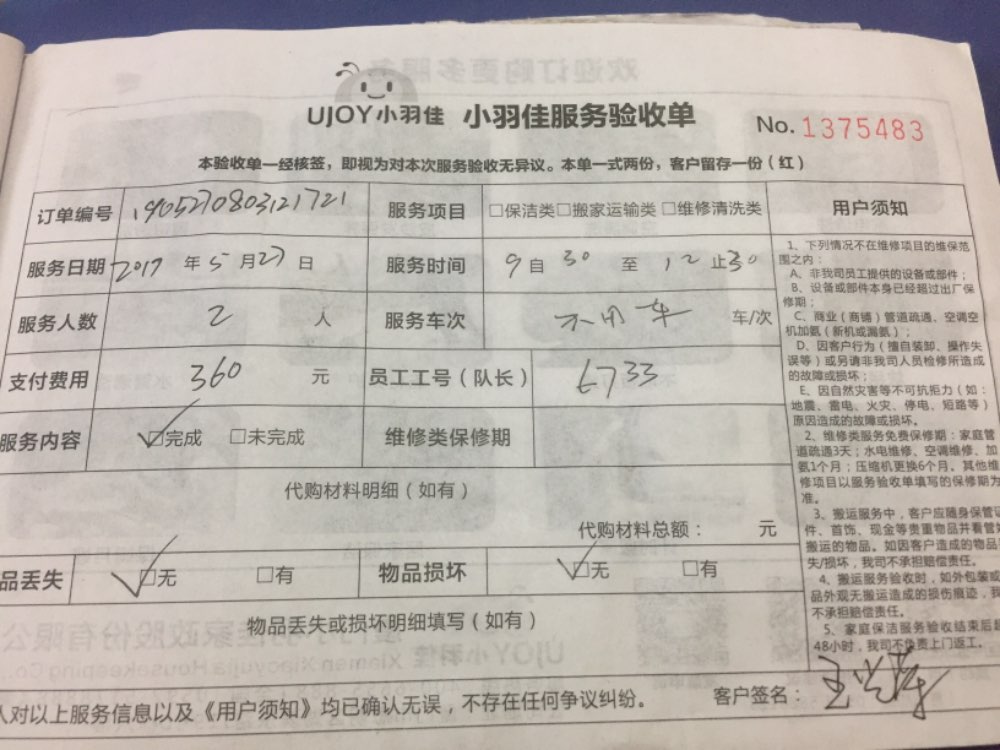 UJOY小羽佳 小羽佳服务验收单
No. 1375483
本验收单一经核签，即视为对本次服务验收无异议。本单一式两份，客户留存一份（红）
订单编号 190527080312172​1 服务项目 □保洁类□搬家运输类□维修清洗类
服务日期 2019 年 5 月 27 日 服务时间 9 自 30 至 12 止 30
服务人数 2 人 服务车次 不用车 车/次
支付费用 360 元 员工工号（队长） 6733
服务内容 ☑完成 □未完成 维修类保修期
代购材料明细（如有）
代购材料总额： 元
品丢失 ☑无 □有 物品损坏 ☑无 □有
物品丢失或损坏明细填写（如有）
人对以上服务信息以及《用户须知》均已确认无误，不存在任何争议纠纷。 客户签名：
用户须知
1、下列情况不在维修项目的维保范
围之内：
A、非我司员工提供的设备或部件；
B、设备或部件本身已经超过出厂保
修期；
C、商业（商铺）管道疏通、空调空
机加氨（新机或漏氨）；
D、因客户行为（擅自装卸、操作失
误等）或另请非我司人员检修所造成
的故障或损坏；
E、因自然灾害等不可抗拒力（如：
地震、雷电、火灾、停电、短路等）
原因造成的故障或损坏。
2、维修类服务免费保修期：家庭管
道疏通3天；水电维修、空调维修、加
氨1个月；压缩机更换6个月。其他维
修项目以服务验收单填写的保修期为
准。
3、搬运服务中，客户应随身保管证
件、首饰、现金等贵重物品并看管
搬运的物品。如因客户造成的物品
失/损坏，我司不承担赔偿责任。
4、搬运服务验收时，如外包装或
品外观无搬运造成的损伤痕迹，我
不承担赔偿责任。
5、家庭保洁服务验收结束后超
48小时，我司不负责上门返工。